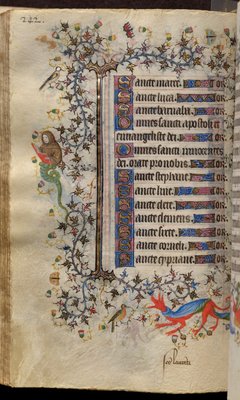 242.
Sancte marce. or
Sancte luca. or
Sancte barnaba. or
Omnes sancti apostoli et
euuangeliste dei. or
Omnes sancti innocentes
dei orate pro nobis.
Sancte stephane. or
Sancte line. or
Sancte clete. or
Sancte clemens. or
Sancte sixte. or
Sancte corneli. or
Sancte cypriane. or